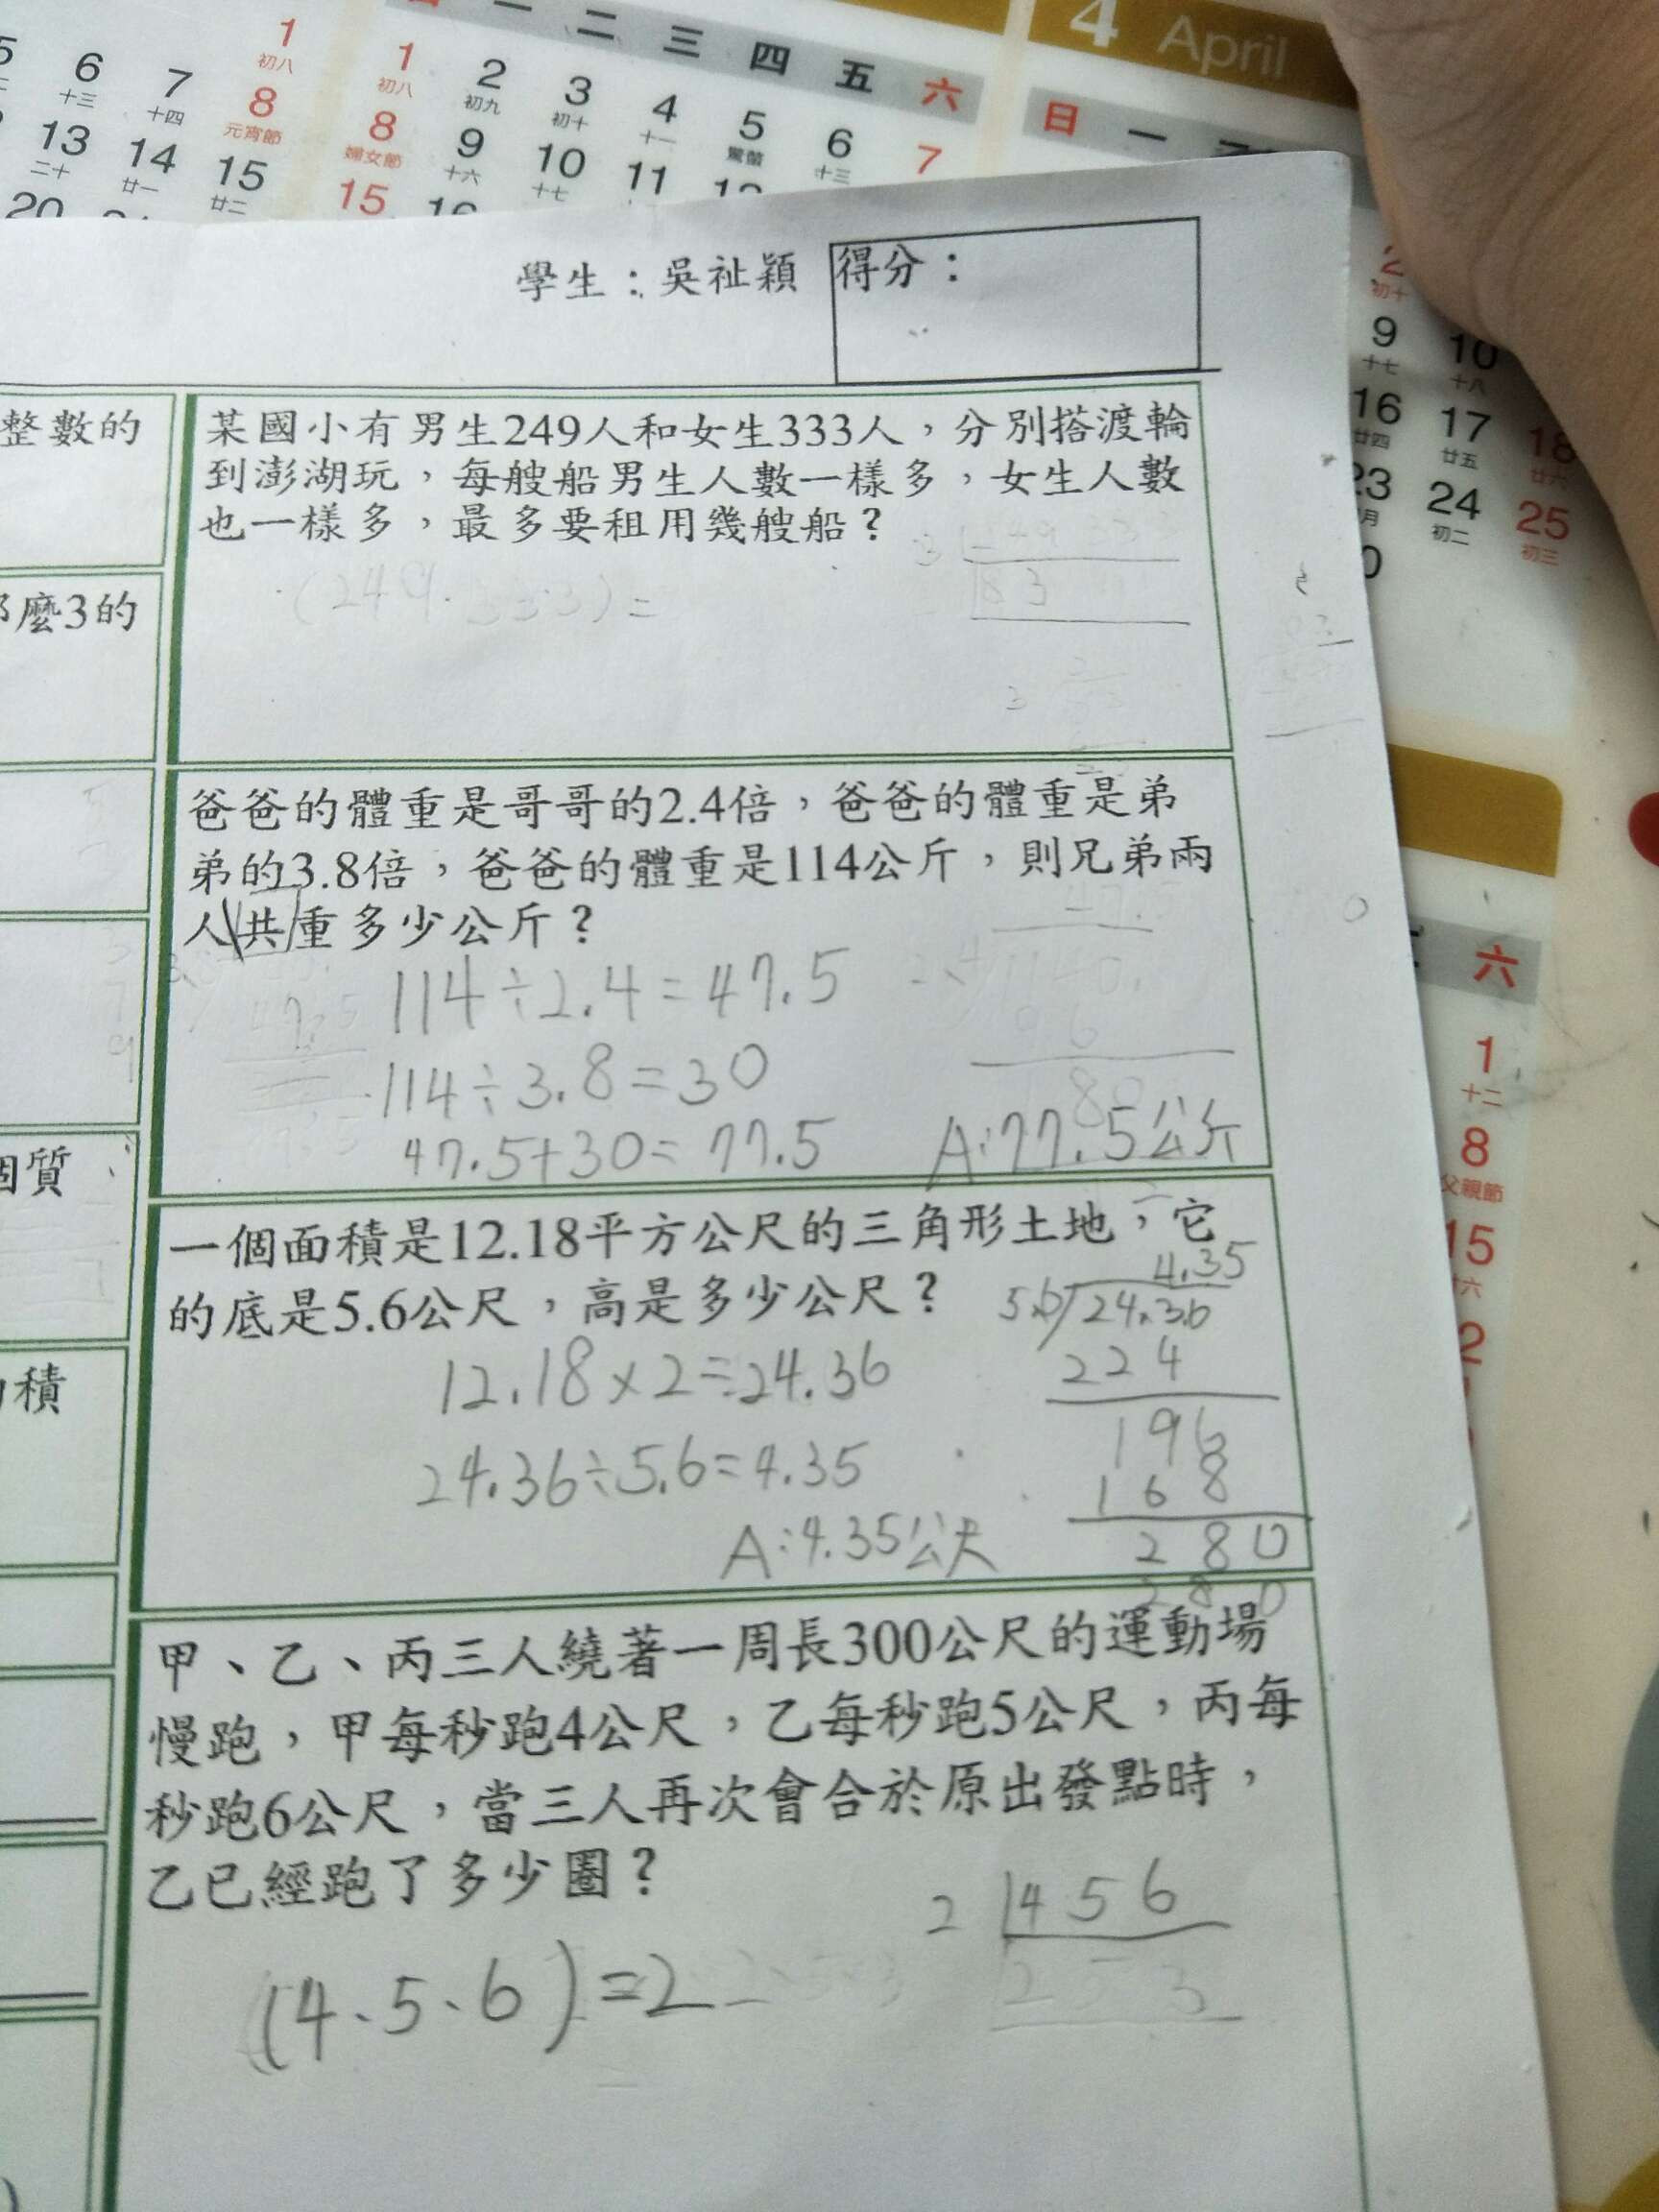 1
初八
6
十三
7
十四
8
元宵節
13
二十
14
廿一
15
廿二
20
一 二 三 四 五 六
1
初八
2
初九
3
初十
4
十一
5
驚蟄
6
十三
7
8
婦女節
9
十六
10
十七
11
15
4 April
日 一
學生：吳祉穎
得分：
整數的
麼3的
質
積
某國小有男生249人和女生333人，分別搭渡輪
到澎湖玩，每艘船男生人數一樣多，女生人數
也一樣多，最多要租用幾艘船？
(249. 333) =
3
83
爸爸的體重是哥哥的2.4倍，爸爸的體重是弟
弟的3.8倍，爸爸的體重是114公斤，則兄弟兩
人共重多少公斤？
114÷2.4=47.5
114÷3.8=30
47.5+30=77.5
A:77.5公斤
一個面積是12.18平方公尺的三角形土地，它
的底是5.6公尺，高是多少公尺？
4.35
5.6 24.36
224
196
168
280
280
12.18×2=24.36
24.36÷5.6=4.35
A:4.35公尺
甲、乙、丙三人繞著一周長300公尺的運動場
慢跑，甲每秒跑4公尺，乙每秒跑5公尺，丙每
秒跑6公尺，當三人再次會合於原出發點時，
乙已經跑了多少圈？
2 4 5 6
2 5 3
(4、5、6)=2
初十
9
十七
10
十八
16
廿四
17
廿五
18
廿六
23
24
初二
25
初三
六
1
十二
8
父親節
15